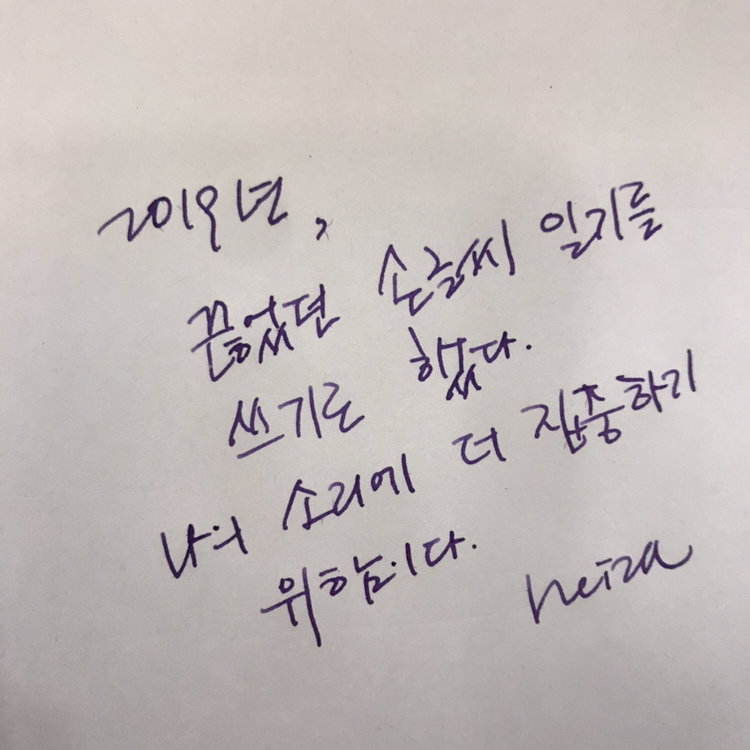 2019년,
끊었던 손글씨 일기를
쓰기로 했다.
나의 소리에 더 집중하기
위함이다.
heiza